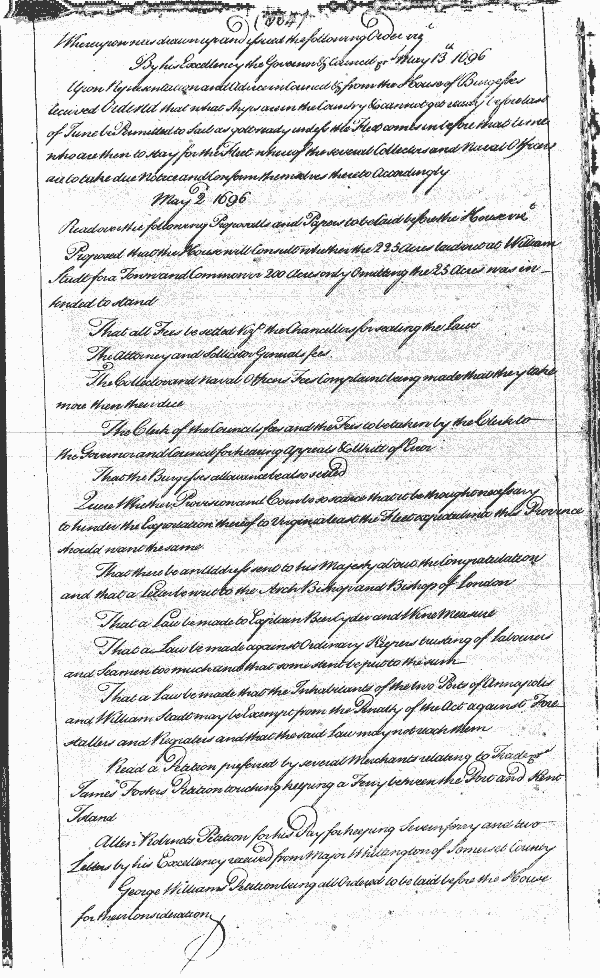 Whereupon was drawn up and issued the following Order viz
By his Excellency the Governor & Councel &c May 13th 1696
Upon Representation and Advice in Council & from the House of Burgesses
received Ordered that what Ships are in the Country & cannot get ready before last
of June be Permitted to Sail as got ready unless the Fleet comes in before that time
who are then to stay for the Fleet whereof the several Collectors and Naval Officers
are to take due Notice and Conform themselves thereto Accordingly
May 2d 1696
Read over the following Proposalls and Papers to be laid before the House viz
Proposed that the House will Consult whether the 225 Acres laid out at William
Stadt for a Town and Common or 200 Acres only Omitting the 25 Acres was in-
tended to stand
That all Fees be settled vizt the Chancellors for sealing the Laws
The Attorney and Sollicitor Generals fees
The Collector and Naval Officers Fees Complaint being made that they take
more then their due
The Clerk of the Councils fees and the Fees to be taken by the Clerk to
the Governor and Council for hearing Appeals & Writt of Error
That the Burgesses allowance be also settled
Quere Whether Provision and Corn be so scarce that it be thought necessary
to hinder the Exportation thereof to Virginia least the Fleet expected into this Province
should want the same
That there be an Address sent to his Majesty about the Congratulation
and that a Letter be writ to the Arch Bishop and Bishop of London
That a Law be made to Explain Beer Cyder and Wine Measure
That a Law be made against Ordinary Keepers trusting of Labourers
and Seamen too much and that some stent be put to the sum
That a Law be made that the Inhabitants of the two Ports of Annapolis
and William Stadt may be Exempt from the Penalty of the Act against Fore
stallers and Regraters and that the said Law may not reach them
Read a Petition preferred by several Merchants relating to Trade &c
James Fosters Petition touching keeping a Ferry between the Port and Kent
Island
Allen Robinets Petition for his Pay for keeping Seven foxes and two
Letters by his Excellency received from Major Whittington of Somerset County
George Williams Petition being all Ordered to be laid before the House
for their Consideration